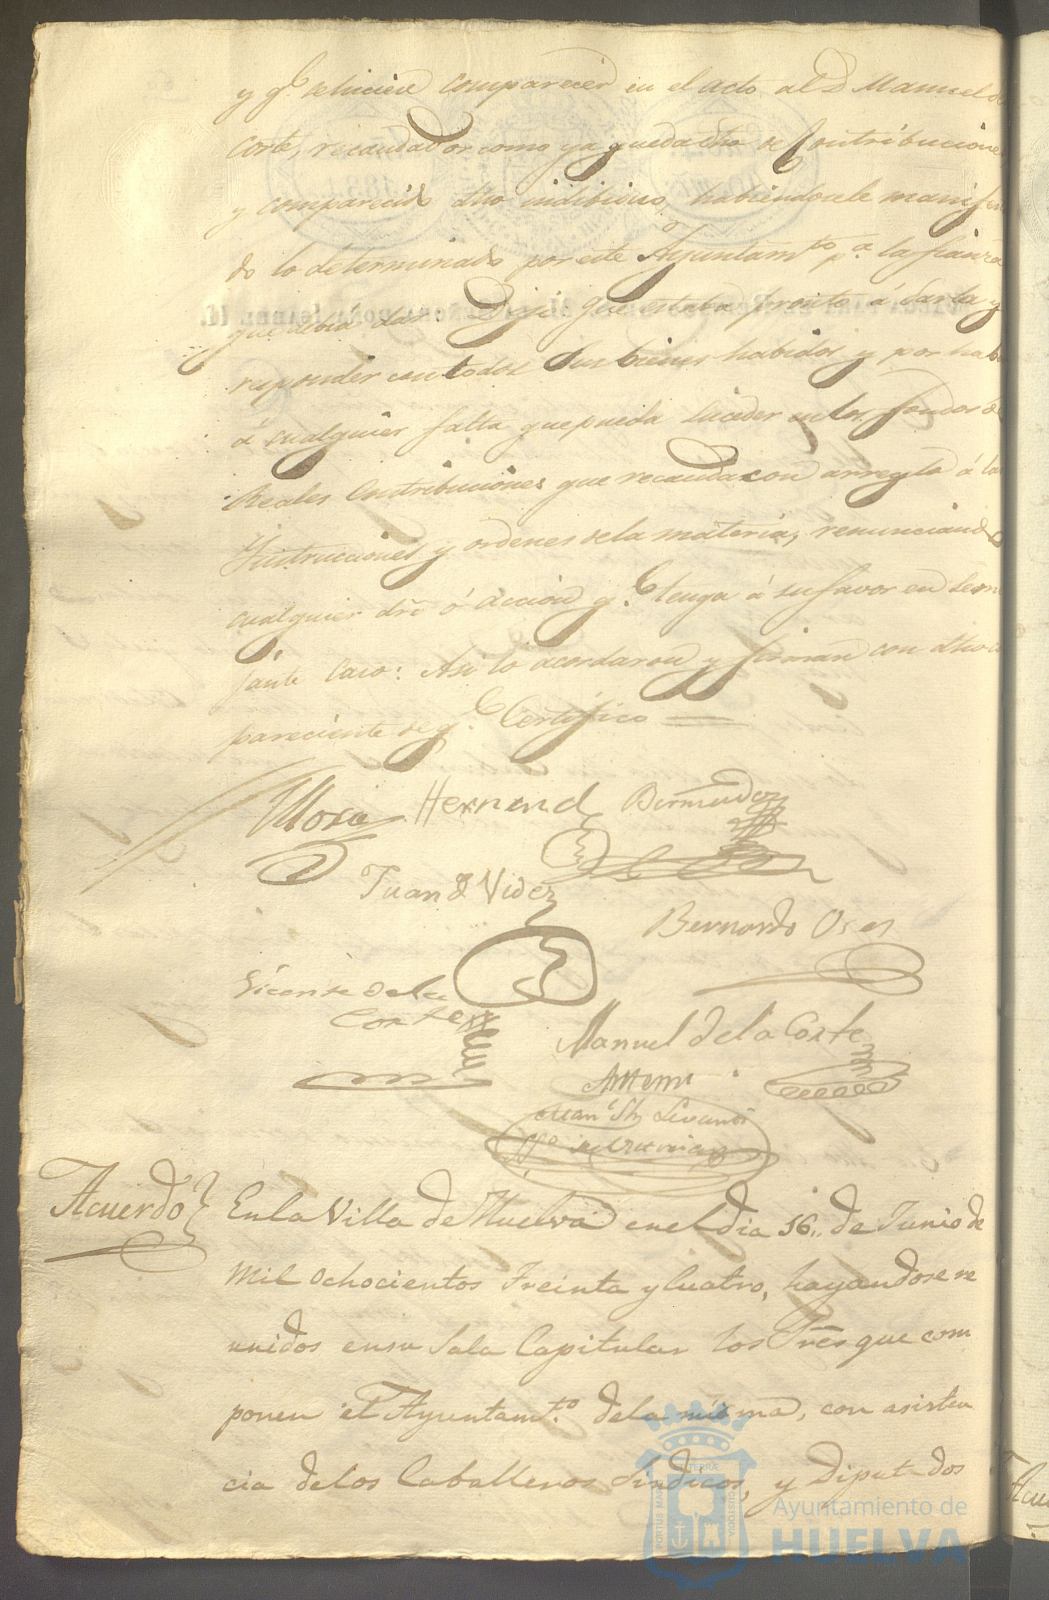 y q.e se hiciese comparecer en el acto al D. Manuel de
Corte, recaudador como ya queda dho de Contribucione
y comparecido dho indibiduo, habiendosele manifes
do lo determinado por este Ayuntam.to p.a la fianza
que debia dar Dijo que estaba pronto á darla y
responder con todos sus bienes habidos y por habe
á cualquier falta que pueda suceder en los fondos de
Reales Contribuciones que recauda con arreglo á las
Instrucciones y ordenes de la materia, renunciando
cualquier dro ó accion q.e tenga á su favor en seme
jante caso: Asi lo acordaron y firman con dho co
pareciente de q.e Certifico
Hernand Bermudez
Juan d Videz
Bernardo Oses
Vicente de la
Corte
Manuel de la Corte
Antemi
Acuerdo
En la Villa de Huelva en el dia 16,, de Junio de
Mil ochocientos Treinta y Cuatro, hayandose re
unidos en su Sala Capitular los Sres que com
ponen el Ayuntam.to de la misma, con asisten
cia de los Caballeros Sindicos, y Diputados
PORTUS MARIS
TERRÆ
CUSTODIA
Ayuntamiento de
HUELVA